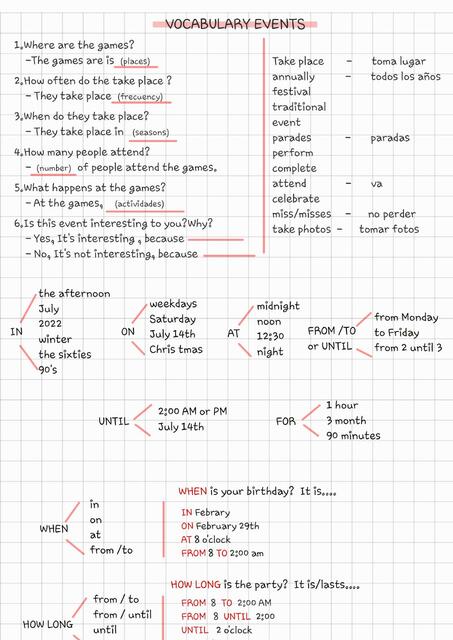 VOCABULARY EVENTS
1.Where are the games?
-The games are is (places)
2.How often do the take place ?
- They take place (frecuency)
3.When do they take place?
- They take place in (seasons)
4.How many people attend?
- (number) of people attend the games.
5.What happens at the games?
- At the games, (actividades)
6.Is this event interesting to you?Why?
- Yes, It's interesting , because
- No, It's not interesting, because
Take place - toma lugar
annually - todos los años
festival
traditional
event
parades - paradas
perform
complete
attend - va
celebrate
miss/misses - no perder
take photos - tomar fotos
IN
the afternoon
July
2022
winter
the sixties
90's
ON
weekdays
Saturday
July 14th
Chris tmas
AT
midnight
noon
12:30
night
FROM /TO
or UNTIL
from Monday
to Friday
from 2 until 3
UNTIL
2:00 AM or PM
July 14th
FOR
1 hour
3 month
90 minutes
WHEN
in
on
at
from /to
WHEN is your birthday? It is....
IN Febrary
ON February 29th
AT 8 o'clock
FROM 8 TO 2:00 am
HOW LONG
from / to
from / until
until
HOW LONG is the party? It is/lasts....
FROM 8 TO 2:00 AM
FROM 8 UNTIL 2:00
UNTIL 2 o'clock